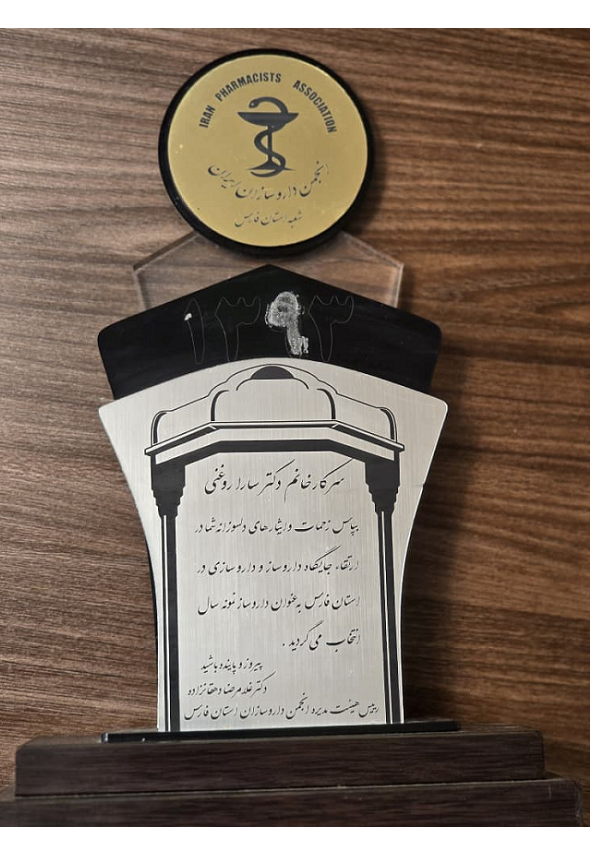 IRAN PHARMACISTS ASSOCIATION
انجمن داروسازان ایران
شعبه استان فارس
۱۳۹۳
سرکار خانم دکتر سارا روغنی
بپاس زحمات و ایثارهای دلسوزانه شما در
ارتقاء جایگاه داروساز و داروسازی در
استان فارس به عنوان داروساز نمونه سال
انتخاب می گردید .
پیروز و پاینده باشید
دکتر غلامرضا دهقانزاده
رییس هیئت مدیره انجمن داروسازان استان فارس